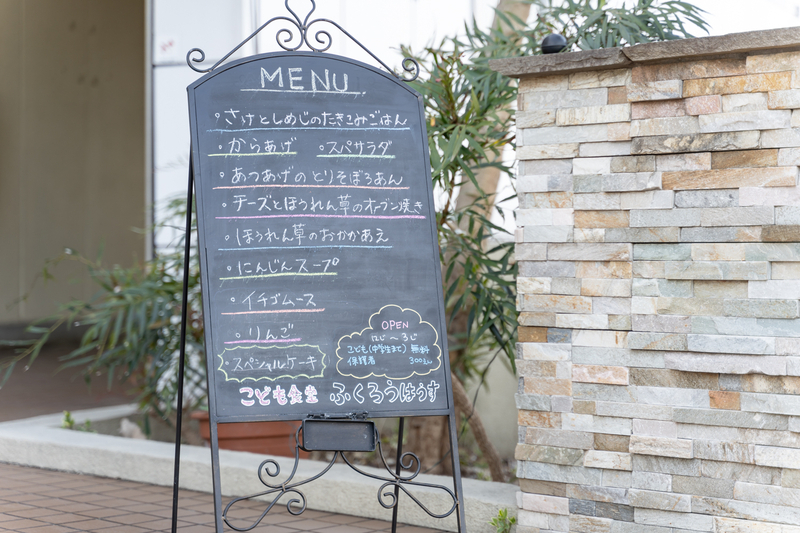 MENU
・さけとしめじのたきこみごはん
・からあげ ・スパサラダ
・あつあげの とりそぼろあん
・チーズとほうれん草のオーブン焼き
・ほうれん草のおかかあえ
・にんじんスープ
・イチゴムース
・りんご
・スペシャルケーキ
OPEN
こども(中学生まで) 無料
保護者 300えん
こども食堂 ふくろうはうす